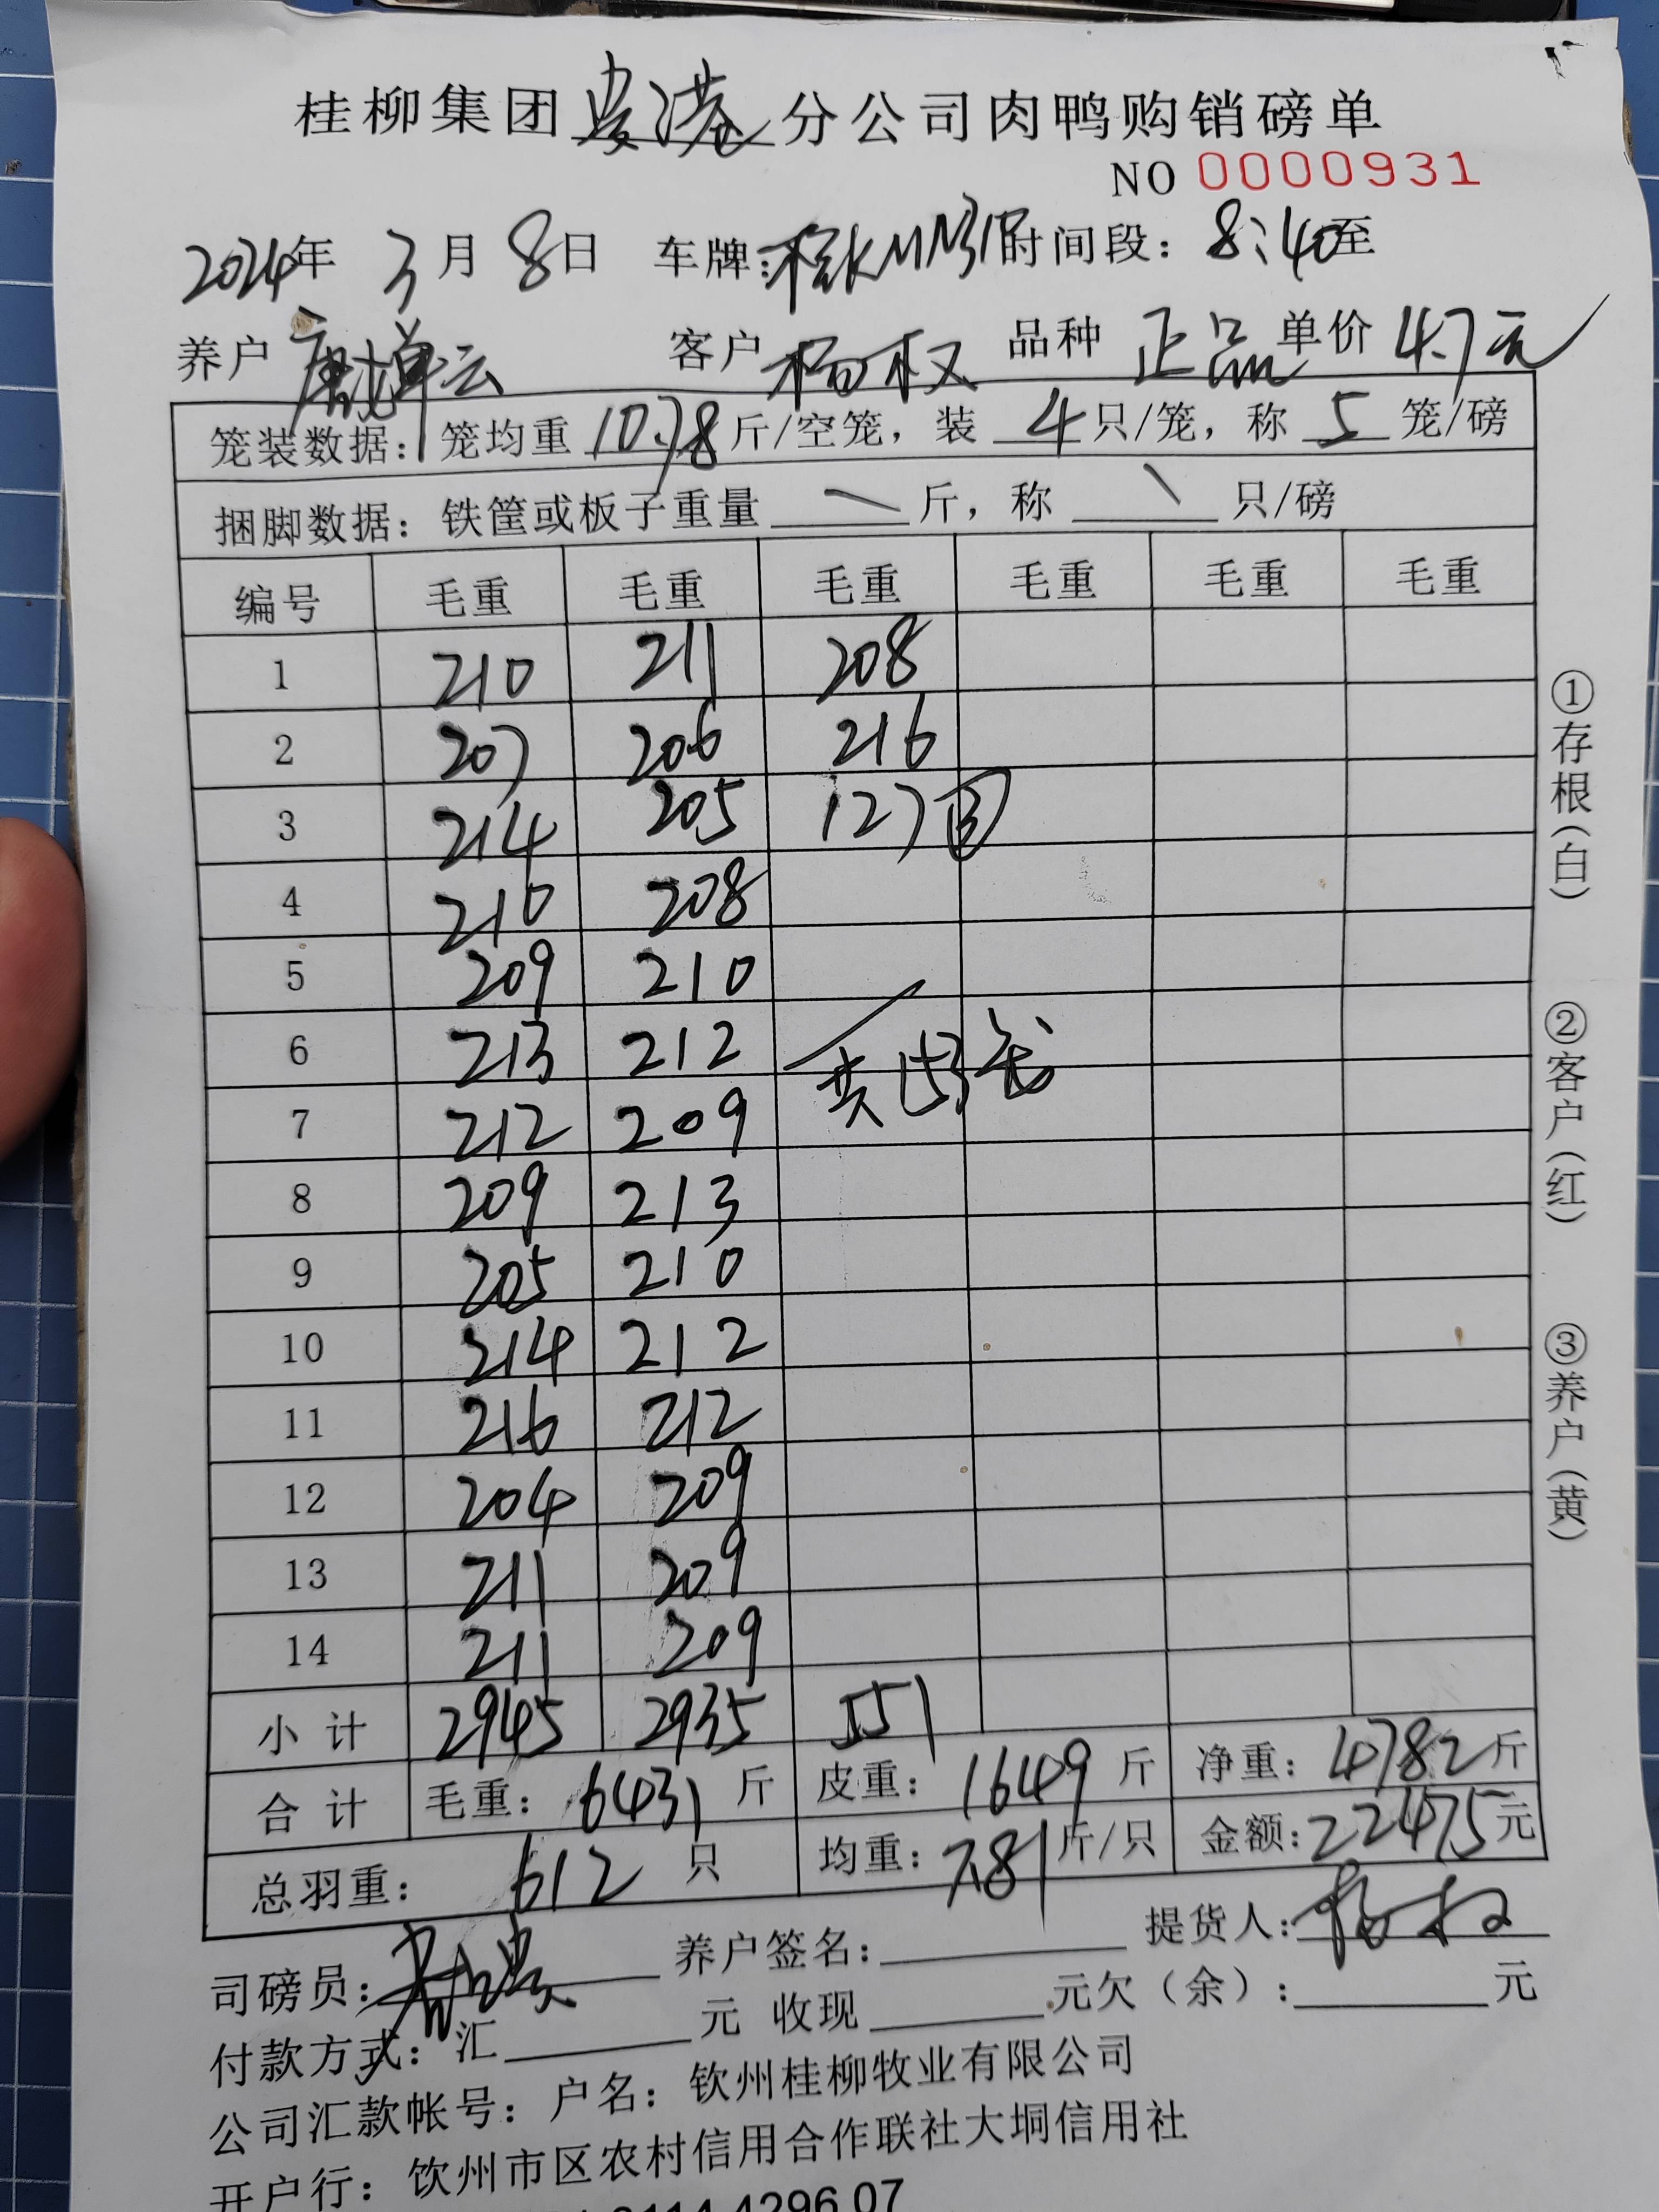 桂柳集团贵港分公司肉鸭购销磅单
NO 0000931
2024年 3月 8日 车牌: 时间段: 8:40至
养户 云 客户 杨权 品种 正品 单价 4.7元
笼装数据: 笼均重 10.78 斤/空笼, 装 4 只/笼, 称 5 笼/磅
捆脚数据: 铁筐或板子重量 \ 斤, 称 \ 只/磅
编号 毛重 毛重 毛重 毛重 毛重 毛重
1 210 211 208
2 207 206 216
3 214 205 127 ③
4 210 208
5 209 210
6 213 212
共153笼
7 212 209
8 209 213
9 205 210
10 214 212
11 216 212
12 204 209
13 211 209
14 211 209
小计 2945 2935 551
合计 毛重: 6431 斤 皮重: 1649 斤 净重: 4782 斤
总羽重: 612 只 均重: 7.81 斤/只 金额: 22475 元
司磅员: 养户签名: 提货人: 杨权
付款方式: 汇 元 收现 元欠(余): 元
公司汇款帐号: 户名: 钦州桂柳牧业有限公司
开户行: 钦州市区农村信用合作联社大垌信用社
4296 07
①存根(白)
②客户(红)
③养户(黄)